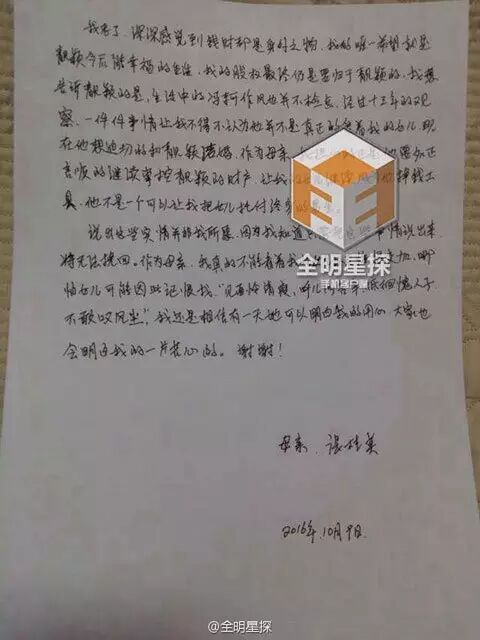 我老了,深深感觉到钱财都是身外之物,我的唯一希望就是
靓颖今后能幸福的生活,我的股权最终仍是要归于靓颖的,我想
告诉靓颖的是,生活中的冯轲作风也并不检点,经过十三年的观
察,一件件事情让我不得不认为他并不是真正的爱着我的女儿,现
在他想迫切的和靓颖结婚,作为母亲,
言顺的继续掌控靓颖的财产,让我的女儿继续 他挣钱工
具,他不是一个可以让我把女儿托付终身的男生。
说出这些实情并非我所愿,因为我知道 事情说出来
将无法挽回。作为母亲,我真的不能看着我 哪
怕女儿可能因此记恨我,"见面怜清瘦,呼儿问苦辛,低徊愧人子
不敢叹风尘",我还是相信有一天她可以明白我的用心,大家也
会明白我的一片苦心的。谢谢!
母亲:张桂英
2016年10月9日
全明星探
手机客户端
@全明星探